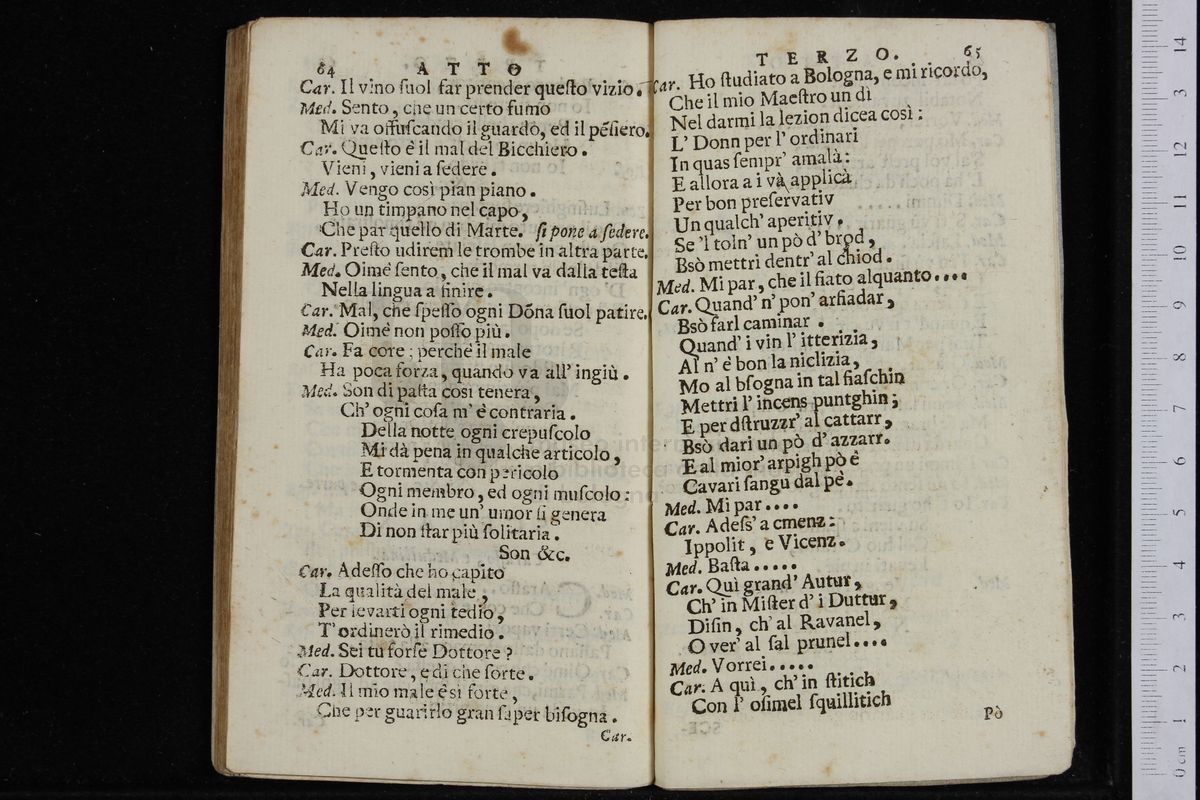 64 ATTO
Car. Il vino ſuol far prender queſto vizio.
Med. Sento, che un certo fumo
Mi va offuſcando il guardo, ed il pẽſiero.
Car. Queſto è il mal del Bicchiero.
Vieni, vieni a ſedere.
Med. Vengo così pian piano.
Ho un timpano nel capo,
Che par quello di Marte. ſi pone a ſedere.
Car. Preſto udirem le trombe in altra parte.
Med. Oimè ſento, che il mal va dalla teſta
Nella lingua a finire.
Car. Mal, che ſpeſſo ogni Dõna ſuol patire.
Med. Oimè non poſſo più.
Car. Fa core: perchè il male
Ha poca forza, quando va all' ingiù.
Med. Son di paſta così tenera,
Ch' ogni coſa m' è contraria.
Della notte ogni crepuſcolo
Mi dà pena in qualche articolo,
E tormenta con pericolo
Ogni membro, ed ogni muſcolo:
Onde in me un' umor ſi genera
Di non ſtar più ſolitaria.
Son &c.
Car. Adeſſo che ho capito
La qualità del male,
Per levarti ogni tedio,
T' ordinerò il rimedio.
Med. Sei tu forſe Dottore?
Car. Dottore, e di che ſorte.
Med. Il mio male è sì forte,
Che per guarirlo gran ſaper biſogna.
Car.
TERZO. 65
Car. Ho ſtudiato a Bologna, e mi ricordo,
Che il mio Maeſtro un dì
Nel darmi la lezion dicea così:
L' Donn per l' ordinari
In quas ſempr' amalà:
E allora a i và applicà
Per bon preſervativ
Un qualch' aperitiv.
Se 'l toln' un pò d' brod,
Bsò mettri dentr' al chiod.
Med. Mi par, che il fiato alquanto....
Car. Quand' n' pon' arfiadar,
Bsò farl caminar.
Quand' i vin l' itterizia,
Al n' è bon la niclizia,
Mo al bſogna in tal fiaſchin
Mettri l' incens puntghin;
E per dſtruzzr' al cattarr,
Bsò dari un pò d' azzarr.
E al mior' arpigh pò è
Cavari ſangu dal pè.
Med. Mi par....
Car. Adeſs' a cmenz:
Ippolit, e Vicenz.
Med. Baſta.....
Car. Quì grand' Autur,
Ch' in Miſter d' i Duttur,
Diſin, ch' al Ravanel,
O ver' al ſal prunel....
Med. Vorrei.....
Car. A quì, ch' in ſtitich
Con l' oſimel ſquillitich
Pò